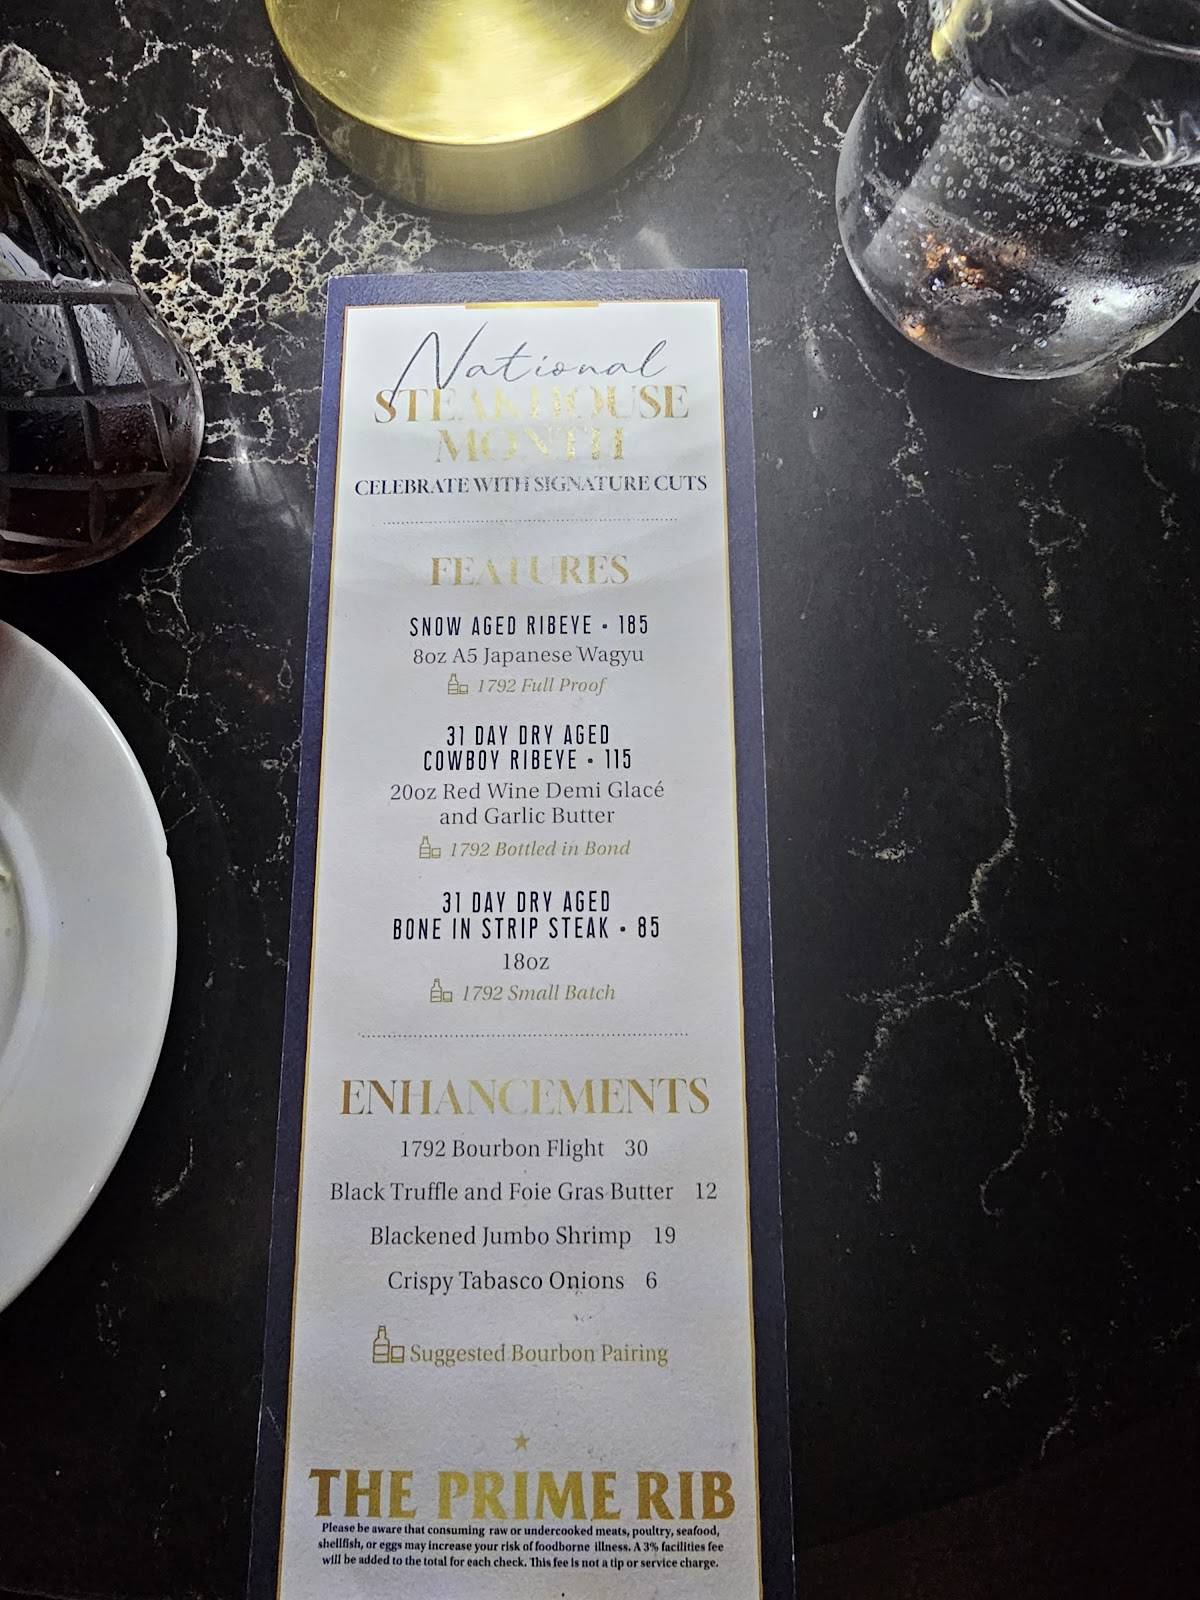 National
STEAKHOUSE
MONTH
CELEBRATE WITH SIGNATURE CUTS
FEATURES
SNOW AGED RIBEYE • 185
8oz A5 Japanese Wagyu
1792 Full Proof
31 DAY DRY AGED
COWBOY RIBEYE • 115
20oz Red Wine Demi Glacé
and Garlic Butter
1792 Bottled in Bond
31 DAY DRY AGED
BONE IN STRIP STEAK • 85
18oz
1792 Small Batch
ENHANCEMENTS
1792 Bourbon Flight 30
Black Truffle and Foie Gras Butter 12
Blackened Jumbo Shrimp 19
Crispy Tabasco Onions 6
Suggested Bourbon Pairing
THE PRIME RIB
Please be aware that consuming raw or undercooked meats, poultry, seafood,
shellfish, or eggs may increase your risk of foodborne illness. A 3% facilities fee
will be added to the total for each check. This fee is not a tip or service charge.